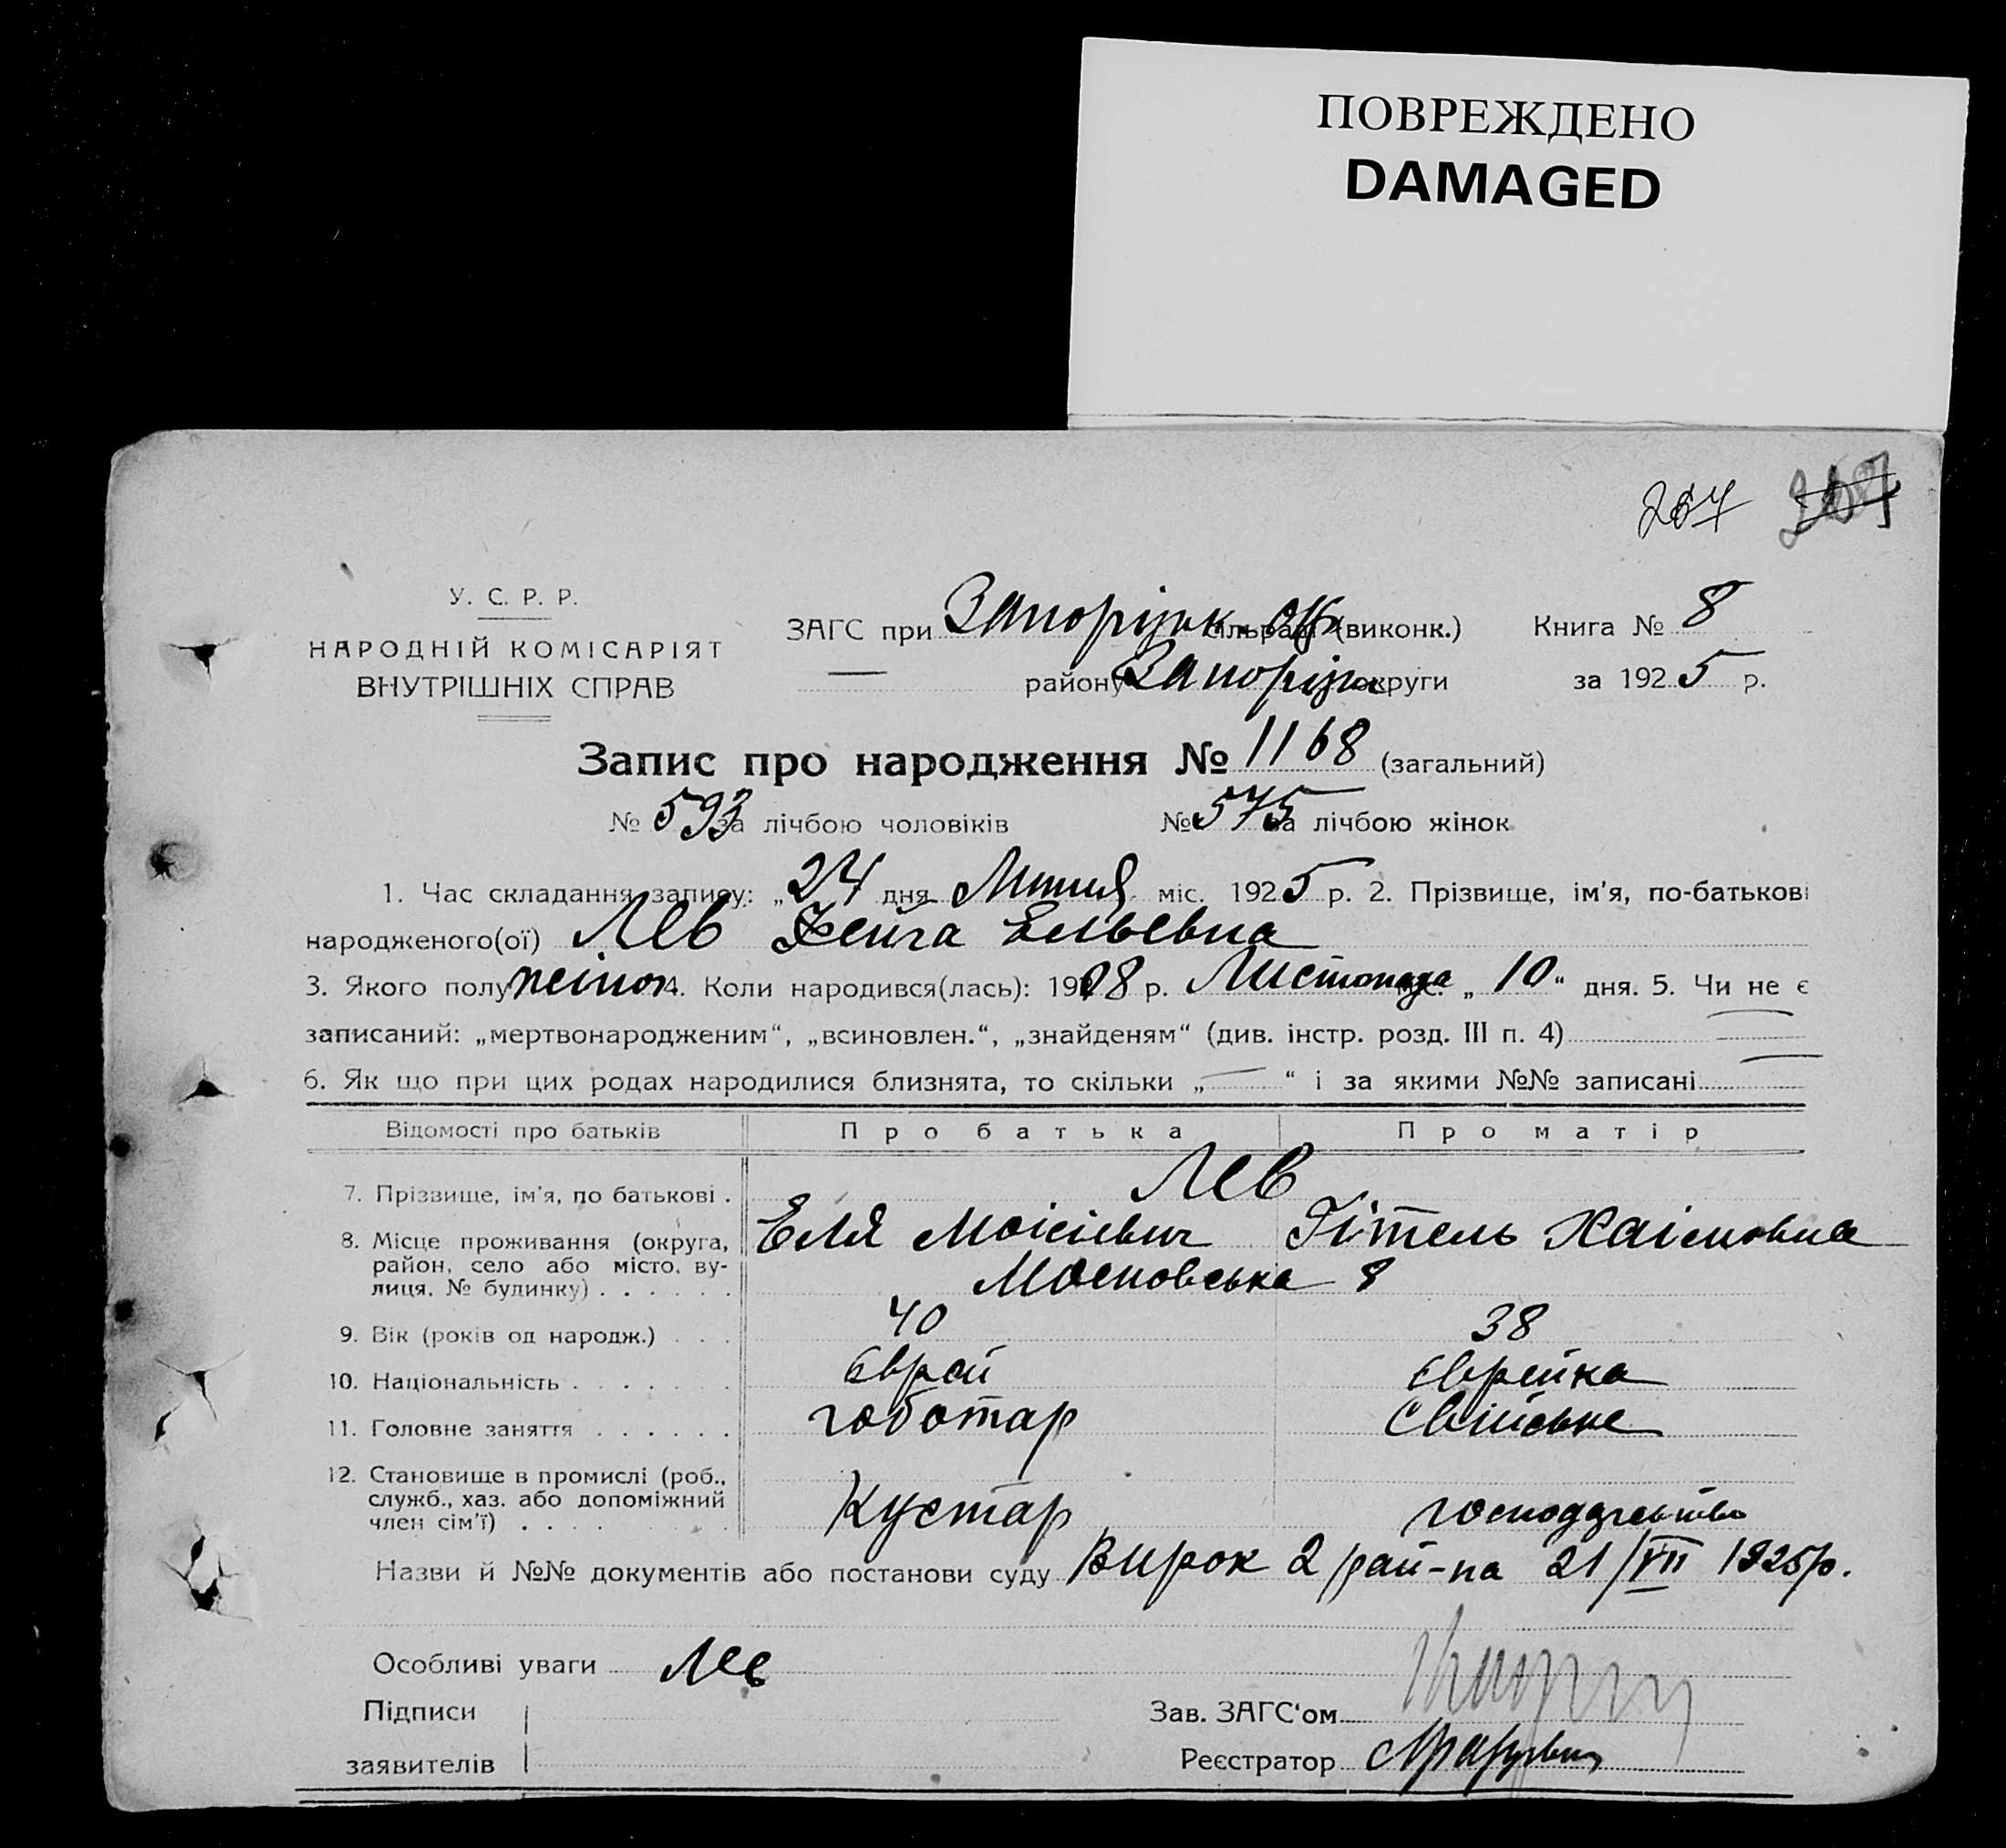 ПОВРЕЖДЕНО
DAMAGED
264
У. С. Р. Р.
НАРОДНІЙ КОМІСАРІЯТ
ВНУТРІШНІХ СПРАВ
ЗАГС при Запоріжк. сільраді (виконк.) Книга № 8
— району Запоріжк округи за 1925 р.
Запис про народження № 1168 (загальний)
№ 593 за лічбою чоловіків № 575 за лічбою жінок
1. Час складання запису: „24 дня Липня міс. 1925 р. 2. Прізвище, ім'я, по-батькові
народженого(ої) Лев Фейга Ельевна
3. Якого полу жіноч 4. Коли народився(лась): 1908 р. Листопада міс. „10“ дня. 5. Чи не є
записаний: „мертвонародженим“, „всиновлен.“, „знайденям“ (див. інстр. розд. III п. 4) —
6. Як що при цих родах народилися близнята, то скільки „—“ і за якими №№ записані —
Відомості про батьків Про батька Про матір
7. Прізвище, ім'я, по батькові . Лев
Еля Моісієвич Гітель Хаімовна
8. Місце проживання (округа,
район, село або місто, ву-
лиця, № будинку) . . . . . . Московська 8
9. Вік (років од народж.) . . . 40 38
10. Національність . . . . . . . Єврей Єврейка
11. Головне заняття . . . . . . чоботар Свійське
12. Становище в промислі (роб.,
служб., хаз. або допоміжний
член сім'ї) . . . . Кустар господарство
Назви й №№ документів або постанови суду Вирок 2 рай-на 21/VII 1925р.
Особливі уваги Лев
Підписи
заявителів
Зав. ЗАГС'ом
Реєстратор